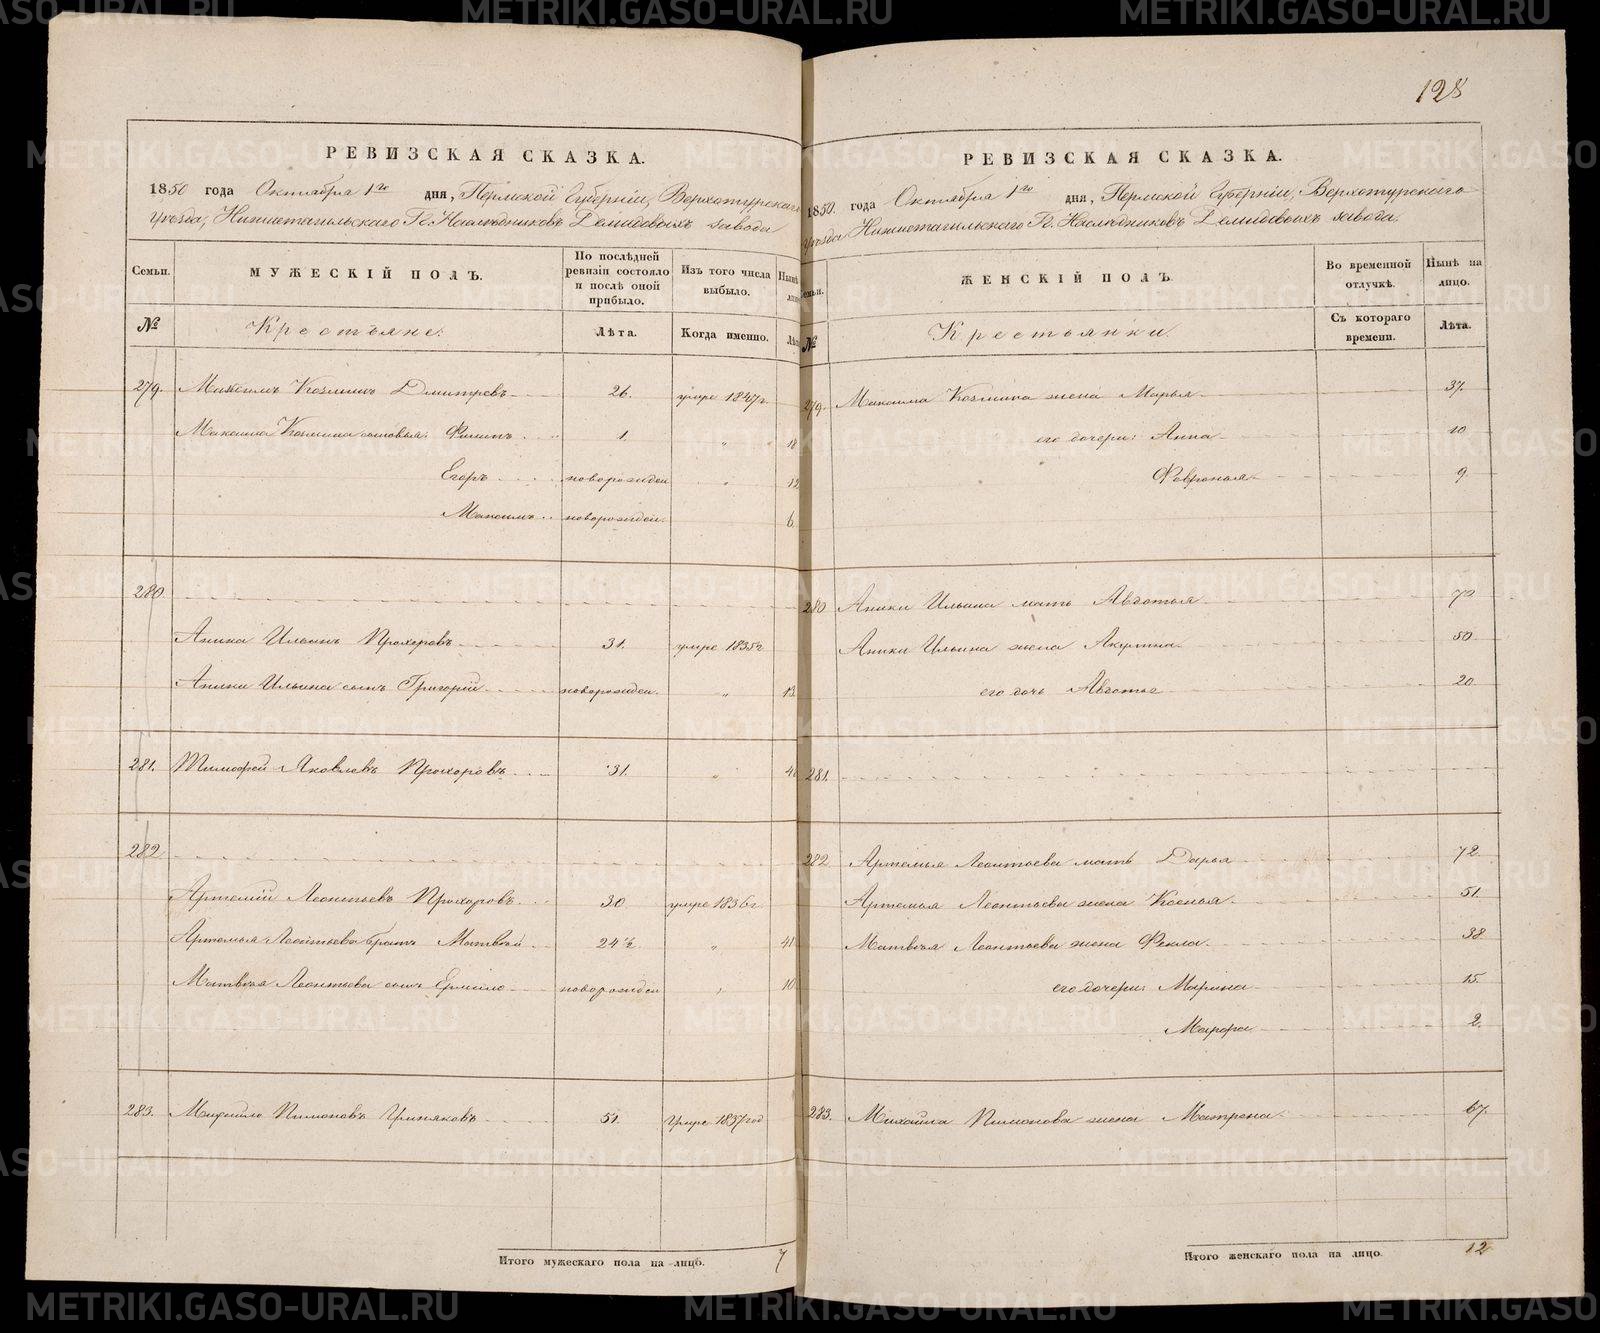 РЕВИЗСКАЯ СКАЗКА.
1850 года Октября 1го дня, Пермской Губерніи, Верхотурскаго
Уѣзда, Нижнетагильскаго Гг. Наслѣдниковъ Демидовыхъ завода
Семьи. МУЖЕСКІЙ ПОЛЪ. По послѣдней ревизіи состояло и послѣ оной прибыло. Изъ того числа выбыло. Нынѣ
№ Крестьяне: Лѣта. Когда именно. Лѣта
279. Максимъ Козминъ Дмитревъ 26. умре 1847г.
Максима Козмина сыновья: Филипъ 1. " 18
Егоръ новорожден " 12
Максимъ новорожден. 6
280.
Аника Ильинъ Прохоровъ 31. умре 1835г
Аники Ильина сынъ Григорій новорожден. " 13
281. Тимофей Яковлевъ Прохоровъ 31. "
282
Артемій Леонтьевъ Прохоровъ 30 умре 1836г
Артемья Леонтьева братъ Матвѣй 24½ " 41
Матвѣя Леонтьева сынъ Ермило новорожден " 10
283. Михайло Пимоновъ 51. Умре 1837 год
Итого мужескаго пола на лицо. 7
128
РЕВИЗСКАЯ СКАЗКА.
1850. года Октября 1го дня, Пермской Губерніи, Верхотурскаго
Уѣзда Нижнетагильскаго Гг. Наслѣдниковъ Демидовыхъ завода
Семьи. ЖЕНСКІЙ ПОЛЪ. Во временной отлучкѣ. Нынѣ на лицо.
№ Крестьянки. Съ котораго времени. Лѣта.
279. Максима Козмина жена Марья 37.
его дочери: Анна 10
Февронья 9
280 Аники Ильина мать Авдотья 72
Аники Ильина жена Акулина 50
его дочь Авдотья 20
281.
282 Артемья Леонтьева мать Дарья 72
Артемья Леонтьева жена Ксенья 51.
Матвѣя Леонтьева жена Фекла 38
его дочери: Марина 15.
Марфа 2.
283. Михайла Пимонова жена Матрена 67.
Итого женскаго пола на лицо. 12
METRIKI.GASO-URAL.RU